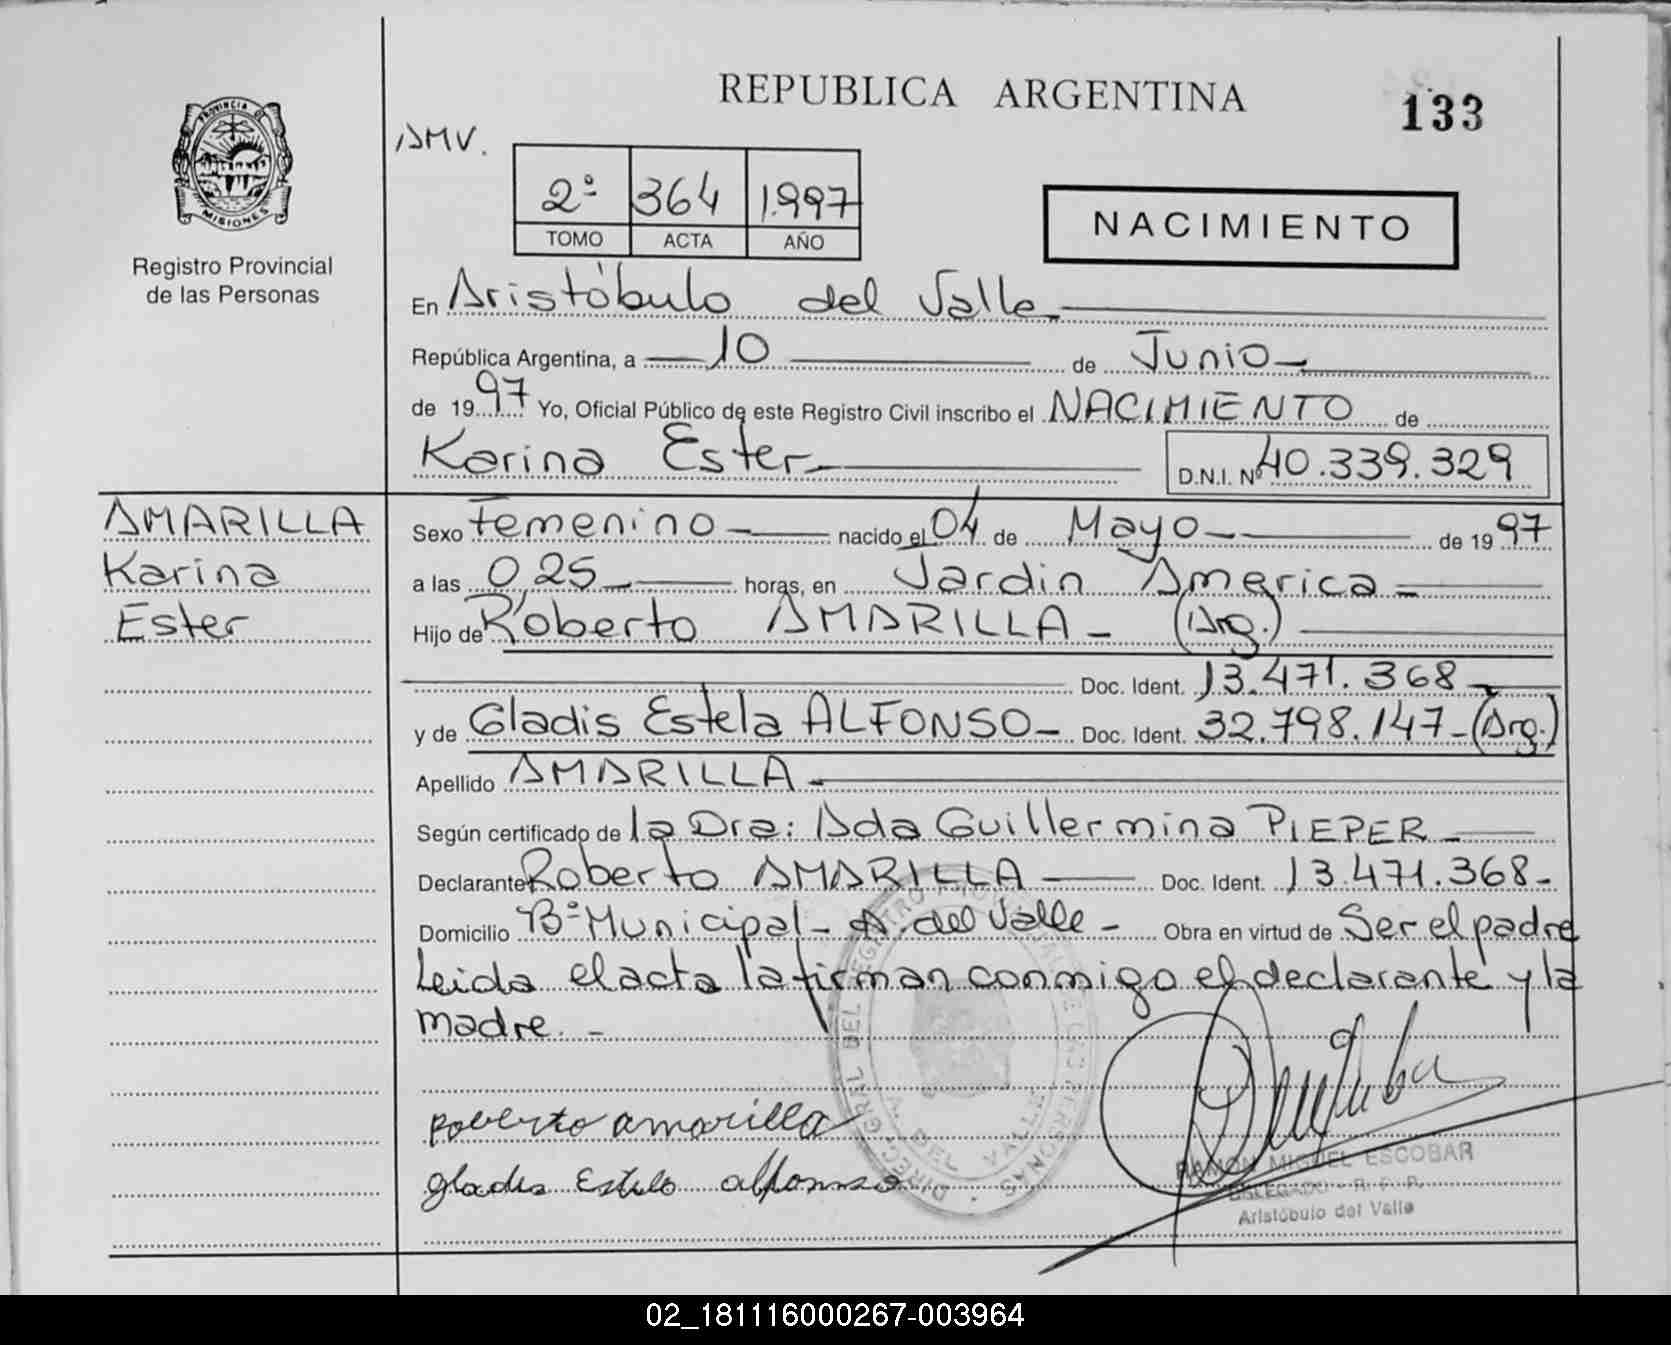 REPUBLICA ARGENTINA
133
PROVINCIA DE
MISIONES
Registro Provincial
de las Personas
AMV.
2º 364 1.997
TOMO ACTA AÑO
NACIMIENTO
En Aristóbulo del Valle
República Argentina, a 10 de Junio
de 1997 Yo, Oficial Público de este Registro Civil inscribo el NACIMIENTO de
Karina Ester
D.N.I. Nº 40.339.329
AMARILLA
Karina
Ester
Sexo Femenino nacido el 04 de Mayo de 1997
a las 0,25 horas, en Jardin America
Hijo de Roberto AMARILLA - (Arg.)
Doc. Ident. 13.471.368
y de Gladis Estela ALFONSO - Doc. Ident. 32.798.147 - (Arg.)
Apellido AMARILLA
Según certificado de la Dra: Ada Guillermina PIEPER
Declarante Roberto AMARILLA Doc. Ident. 13.471.368-
Domicilio Bº Municipal - A. del Valle - Obra en virtud de Ser el padre
Leida el acta la firman conmigo el declarante y la
madre. -
Roberto amarilla
gladis Estela alfonso
RAMON MIGUEL ESCOBAR
DELEGADO - R. P. P.
Aristóbulo del Valle
02_181116000267-003964